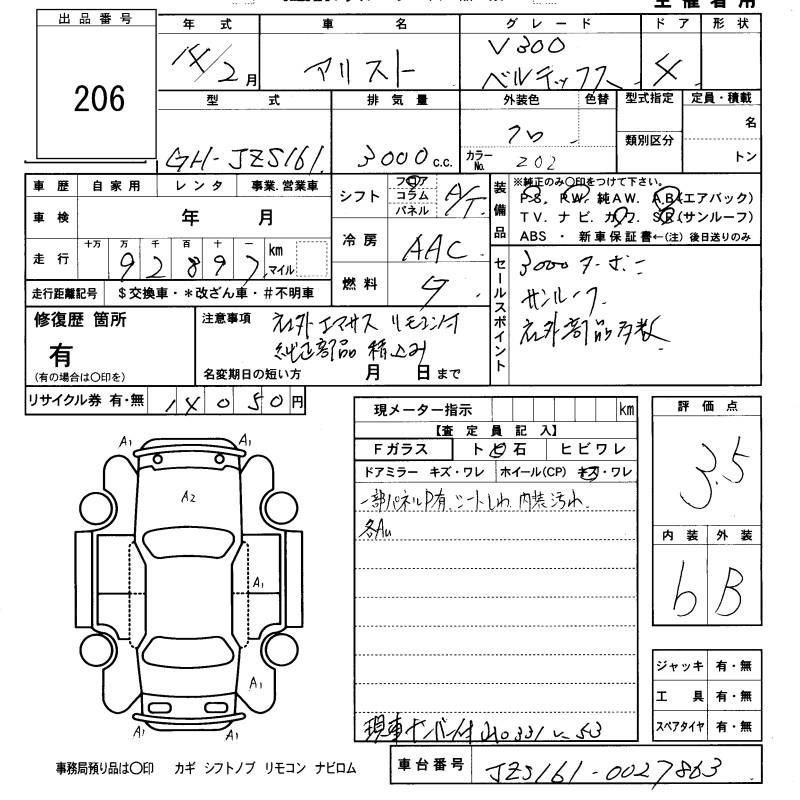 主催者用
出品番号
206
年式 車名 グレード ドア 形状
14/2月 アリスト V300
ベルテックス 4
型式 排気量 外装色 色替 型式指定 定員・積載
類別区分
GH-JZS161 3000c.c. クロ カラーNo. 202 名
トン
車歴 自家用 レンタ 事業.営業車
車検 年 月
走行 十万 万 千 百 十 一 km マイル
92897
走行距離記号 $交換車・*改ざん車・#不明車
シフト フロア コラム パネル A/T
冷房 AAC
燃料 ガ
装備品 ※純正のみ〇印をつけて下さい。
P.S, P.W. 純AW. A.B(エアバック)
T.V. ナビ. カワ. S.R(サンルーフ)
ABS ・ 新車保証書←(注) 後日送りのみ
セールスポイント
3000ターボ
サンルーフ
社外部品多数
修復歴 箇所
有
(有の場合は〇印を)
注意事項 社外エアサス リモコン付
純正部品 積込み
名変期日の短い方 月 日まで
リサイクル券 有・無 14050円
現メーター指示 km
【査定員記入】
Fガラス ト ビ 石 ヒビワレ
ドアミラー キズ・ワレ ホイール(CP) キズ・ワレ
一部パネルP有、シートしわ、内装汚れ
各Au
現車ナンバー付
評価点
3.5
内装 外装
b B
ジャッキ 有・無
工具 有・無
スペアタイヤ 有・無
A1 A1
A2
A1
A1
A1 A1
事務局預り品は〇印 カギ シフトノブ リモコン ナビロム
車台番号 JZS161-0027863